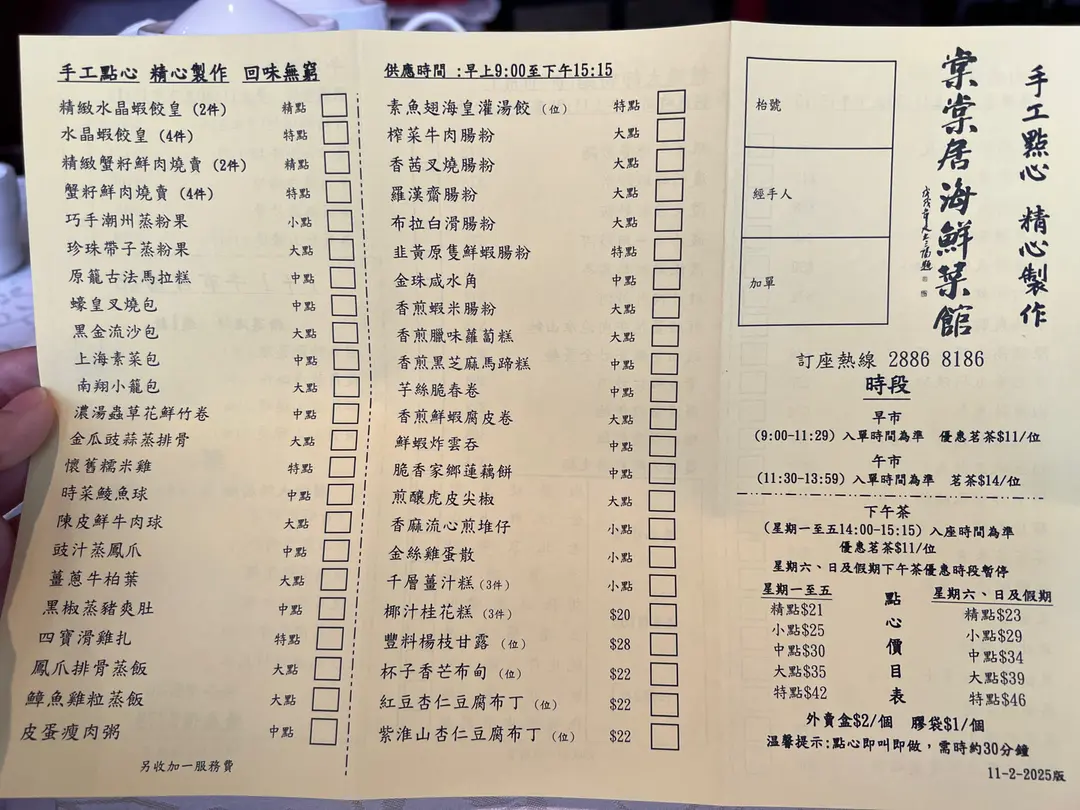 手工點心 精心製作 回味無窮
精緻水晶蝦餃皇 (2件) 精點
水晶蝦餃皇 (4件) 特點
精緻蟹籽鮮肉燒賣 (2件) 精點
蟹籽鮮肉燒賣 (4件) 特點
巧手潮州蒸粉果 小點
珍珠帶子蒸粉果 大點
原籠古法馬拉糕 中點
蠔皇叉燒包 中點
黑金流沙包 大點
上海素菜包 中點
南翔小籠包 大點
濃湯蟲草花鮮竹卷 中點
金瓜豉蒜蒸排骨 大點
懷舊糯米雞 特點
時菜鯪魚球 中點
陳皮鮮牛肉球 大點
豉汁蒸鳳爪 中點
薑蔥牛柏葉 大點
黑椒蒸豬爽肚 中點
四寶滑雞扎 特點
鳳爪排骨蒸飯 大點
鱆魚雞粒蒸飯 大點
皮蛋瘦肉粥 中點
另收加一服務費
供應時間 :早上9:00至下午15:15
素魚翅海皇灌湯餃 (位) 特點
榨菜牛肉腸粉 大點
香茜叉燒腸粉 大點
羅漢齋腸粉 大點
布拉白滑腸粉 大點
韭黃原隻鮮蝦腸粉 特點
金珠咸水角 中點
香煎蝦米腸粉 大點
香煎臘味蘿蔔糕 大點
香煎黑芝麻馬蹄糕 中點
芋絲脆春卷 中點
香煎鮮蝦腐皮卷 大點
鮮蝦炸雲吞 中點
脆香家鄉蓮藕餅 中點
煎釀虎皮尖椒 大點
香麻流心煎堆仔 小點
金絲雞蛋散 小點
千層薑汁糕 (3件) 小點
椰汁桂花糕 (3件) $20
豐料楊枝甘露 (位) $28
杯子香芒布甸 (位) $22
紅豆杏仁豆腐布丁 (位) $22
紫淮山杏仁豆腐布丁 (位) $22
枱號
經手人
加單
棠棠居海鮮菜館
手工點心 精心製作
訂座熱線 2886 8186
時段
早市
(9:00-11:29) 入單時間為準 優惠茗茶$11/位
午市
(11:30-13:59) 入單時間為準 茗茶$14/位
下午茶
(星期一至五14:00-15:15) 入座時間為準
優惠茗茶$11/位
星期六、日及假期下午茶優惠時段暫停
點心價目表
星期一至五
精點$21
小點$25
中點$30
大點$35
特點$42
星期六、日及假期
精點$23
小點$29
中點$34
大點$39
特點$46
外賣盒$2/個 膠袋$1/個
溫馨提示:點心即叫即做，需時約30分鐘
11-2-2025版